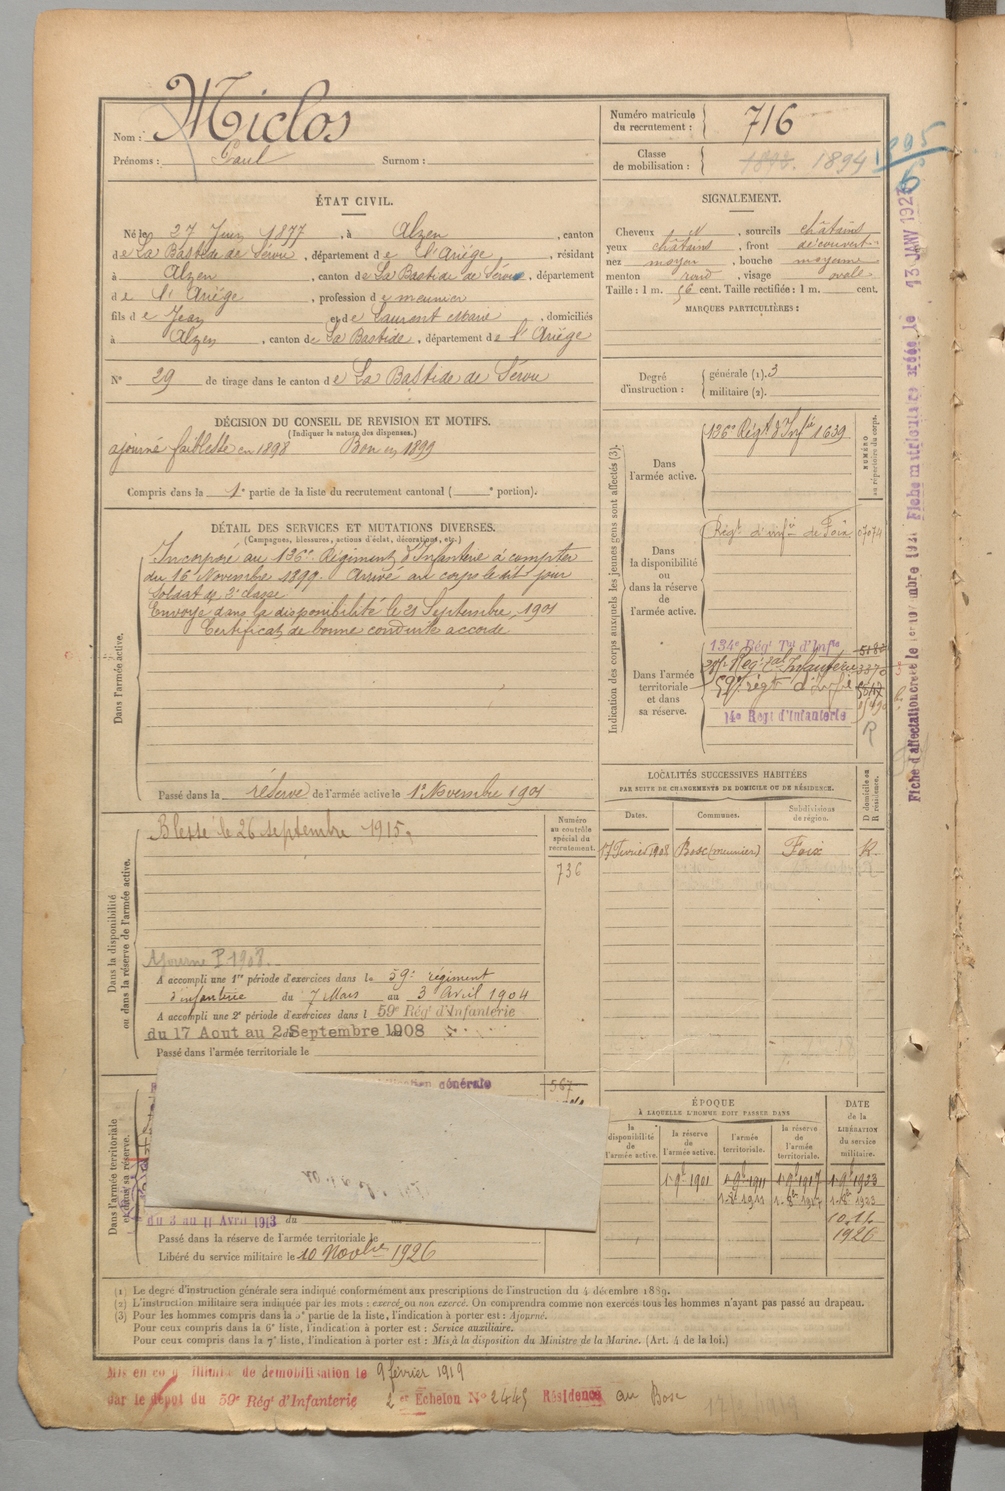 Nom : Miclos
Prénoms : Paul Surnom :
Numéro matricule du recrutement : 716
Classe de mobilisation : 1894
1895
ÉTAT CIVIL.
Né le 27 Juin 1877, à Alzen, canton
de La Bastide de Sérou, département de l'Ariége, résidant
à Alzen, canton de La Bastide de Sérou, département
de l'Ariége, profession de meunier
fils de Jean et de Laurent Marie, domiciliés
à Alzen, canton de La Bastide, département de l'Ariége
N° 29 de tirage dans le canton de La Bastide de Sérou
SIGNALEMENT.
Cheveux sourcils châtains
yeux châtains, front découvert
nez moyen, bouche moyenne
menton rond, visage ovale
Taille : 1 m. 56 cent. Taille rectifiée : 1 m. cent.
MARQUES PARTICULIÈRES :
Degré d'instruction : générale (1). 3
militaire (2).
DÉCISION DU CONSEIL DE REVISION ET MOTIFS.
(Indiquer la nature des dispenses.)
ajourné faiblesse en 1898 Bon en 1899
Compris dans la 1e partie de la liste du recrutement cantonal ( e portion).
DÉTAIL DES SERVICES ET MUTATIONS DIVERSES.
(Campagnes, blessures, actions d'éclat, décorations, etc.)
Dans l'armée active.
Incorporé au 136e Régiment d'Infanterie à compter
du 16 Novembre 1899. Arrivé au corps le dit jour
Soldat de 2e classe
Envoyé dans la disponibilité le 21 Septembre 1901
Certificat de bonne conduite accordé
Passé dans la réserve de l'armée active le 1er Novembre 1901
Indication des corps auxquels les jeunes gens sont affectés (3).
NUMÉRO au répertoire du corps.
Dans l'armée active.
136e Régt d'Infie 1639
Dans la disponibilité ou dans la réserve de l'armée active.
Régt d'infie de Foix
Dans l'armée territoriale et dans sa réserve.
134e Régt Tal d'Infie
Régt tal Infanterie 3370
59e régt d'infie
14e Régt d'Infanterie
R
LOCALITÉS SUCCESSIVES HABITÉES
PAR SUITE DE CHANGEMENTS DE DOMICILE OU DE RÉSIDENCE.
Dates. Communes. Subdivisions de région. D domicile ou R résidence.
17 Février 1908 Bosc (meunier) Foix R
Dans la disponibilité ou dans la réserve de l'armée active.
Numéro au contrôle spécial du recrutement.
736
Blessé le 26 septembre 1915.
Ajourné P 1908.
A accompli une 1re période d'exercices dans le 59e régiment
d'infanterie du 7 Mars au 3 Avril 1904
A accompli une 2e période d'exercices dans l 59e Régt d'Infanterie
du 17 Aout au 2 Septembre 1908
Passé dans l'armée territoriale le
Dans l'armée territoriale et dans sa réserve.
générale
567
du 3 au 11 Avril 1913 du
Passé dans la réserve de l'armée territoriale le
Libéré du service militaire le 10 Novbre 1926
ÉPOQUE
À LAQUELLE L'HOMME DOIT PASSER DANS
la disponibilité de l'armée active. la réserve de l'armée active. l'armée territoriale. la réserve de l'armée territoriale.
DATE de la LIBÉRATION du service militaire.
1 9bre 1901 1 9bre 1911 1 9bre 1917 1 9bre 1923
10.11.
1926
(1) Le degré d'instruction générale sera indiqué conformément aux prescriptions de l'instruction du 4 décembre 1889.
(2) L'instruction militaire sera indiquée par les mots : exercé ou non exercé. On comprendra comme non exercés tous les hommes n'ayant pas passé au drapeau.
(3) Pour les hommes compris dans la 5e partie de la liste, l'indication à porter est : Ajourné.
Pour ceux compris dans la 6e liste, l'indication à porter est : Service auxiliaire.
Pour ceux compris dans la 7e liste, l'indication à porter est : Mis à la disposition du Ministre de la Marine. (Art. 4 de la loi.)
Mis en illimité de démobilisation le 9 février 1919
par le dépot du 59e Régt d'Infanterie 2e Echelon N° 2443 Résidence au Bosc
Fiche d'affectation créée le 1er novembre 1921 Fiche matriculaire créée le 13 JANV 1926